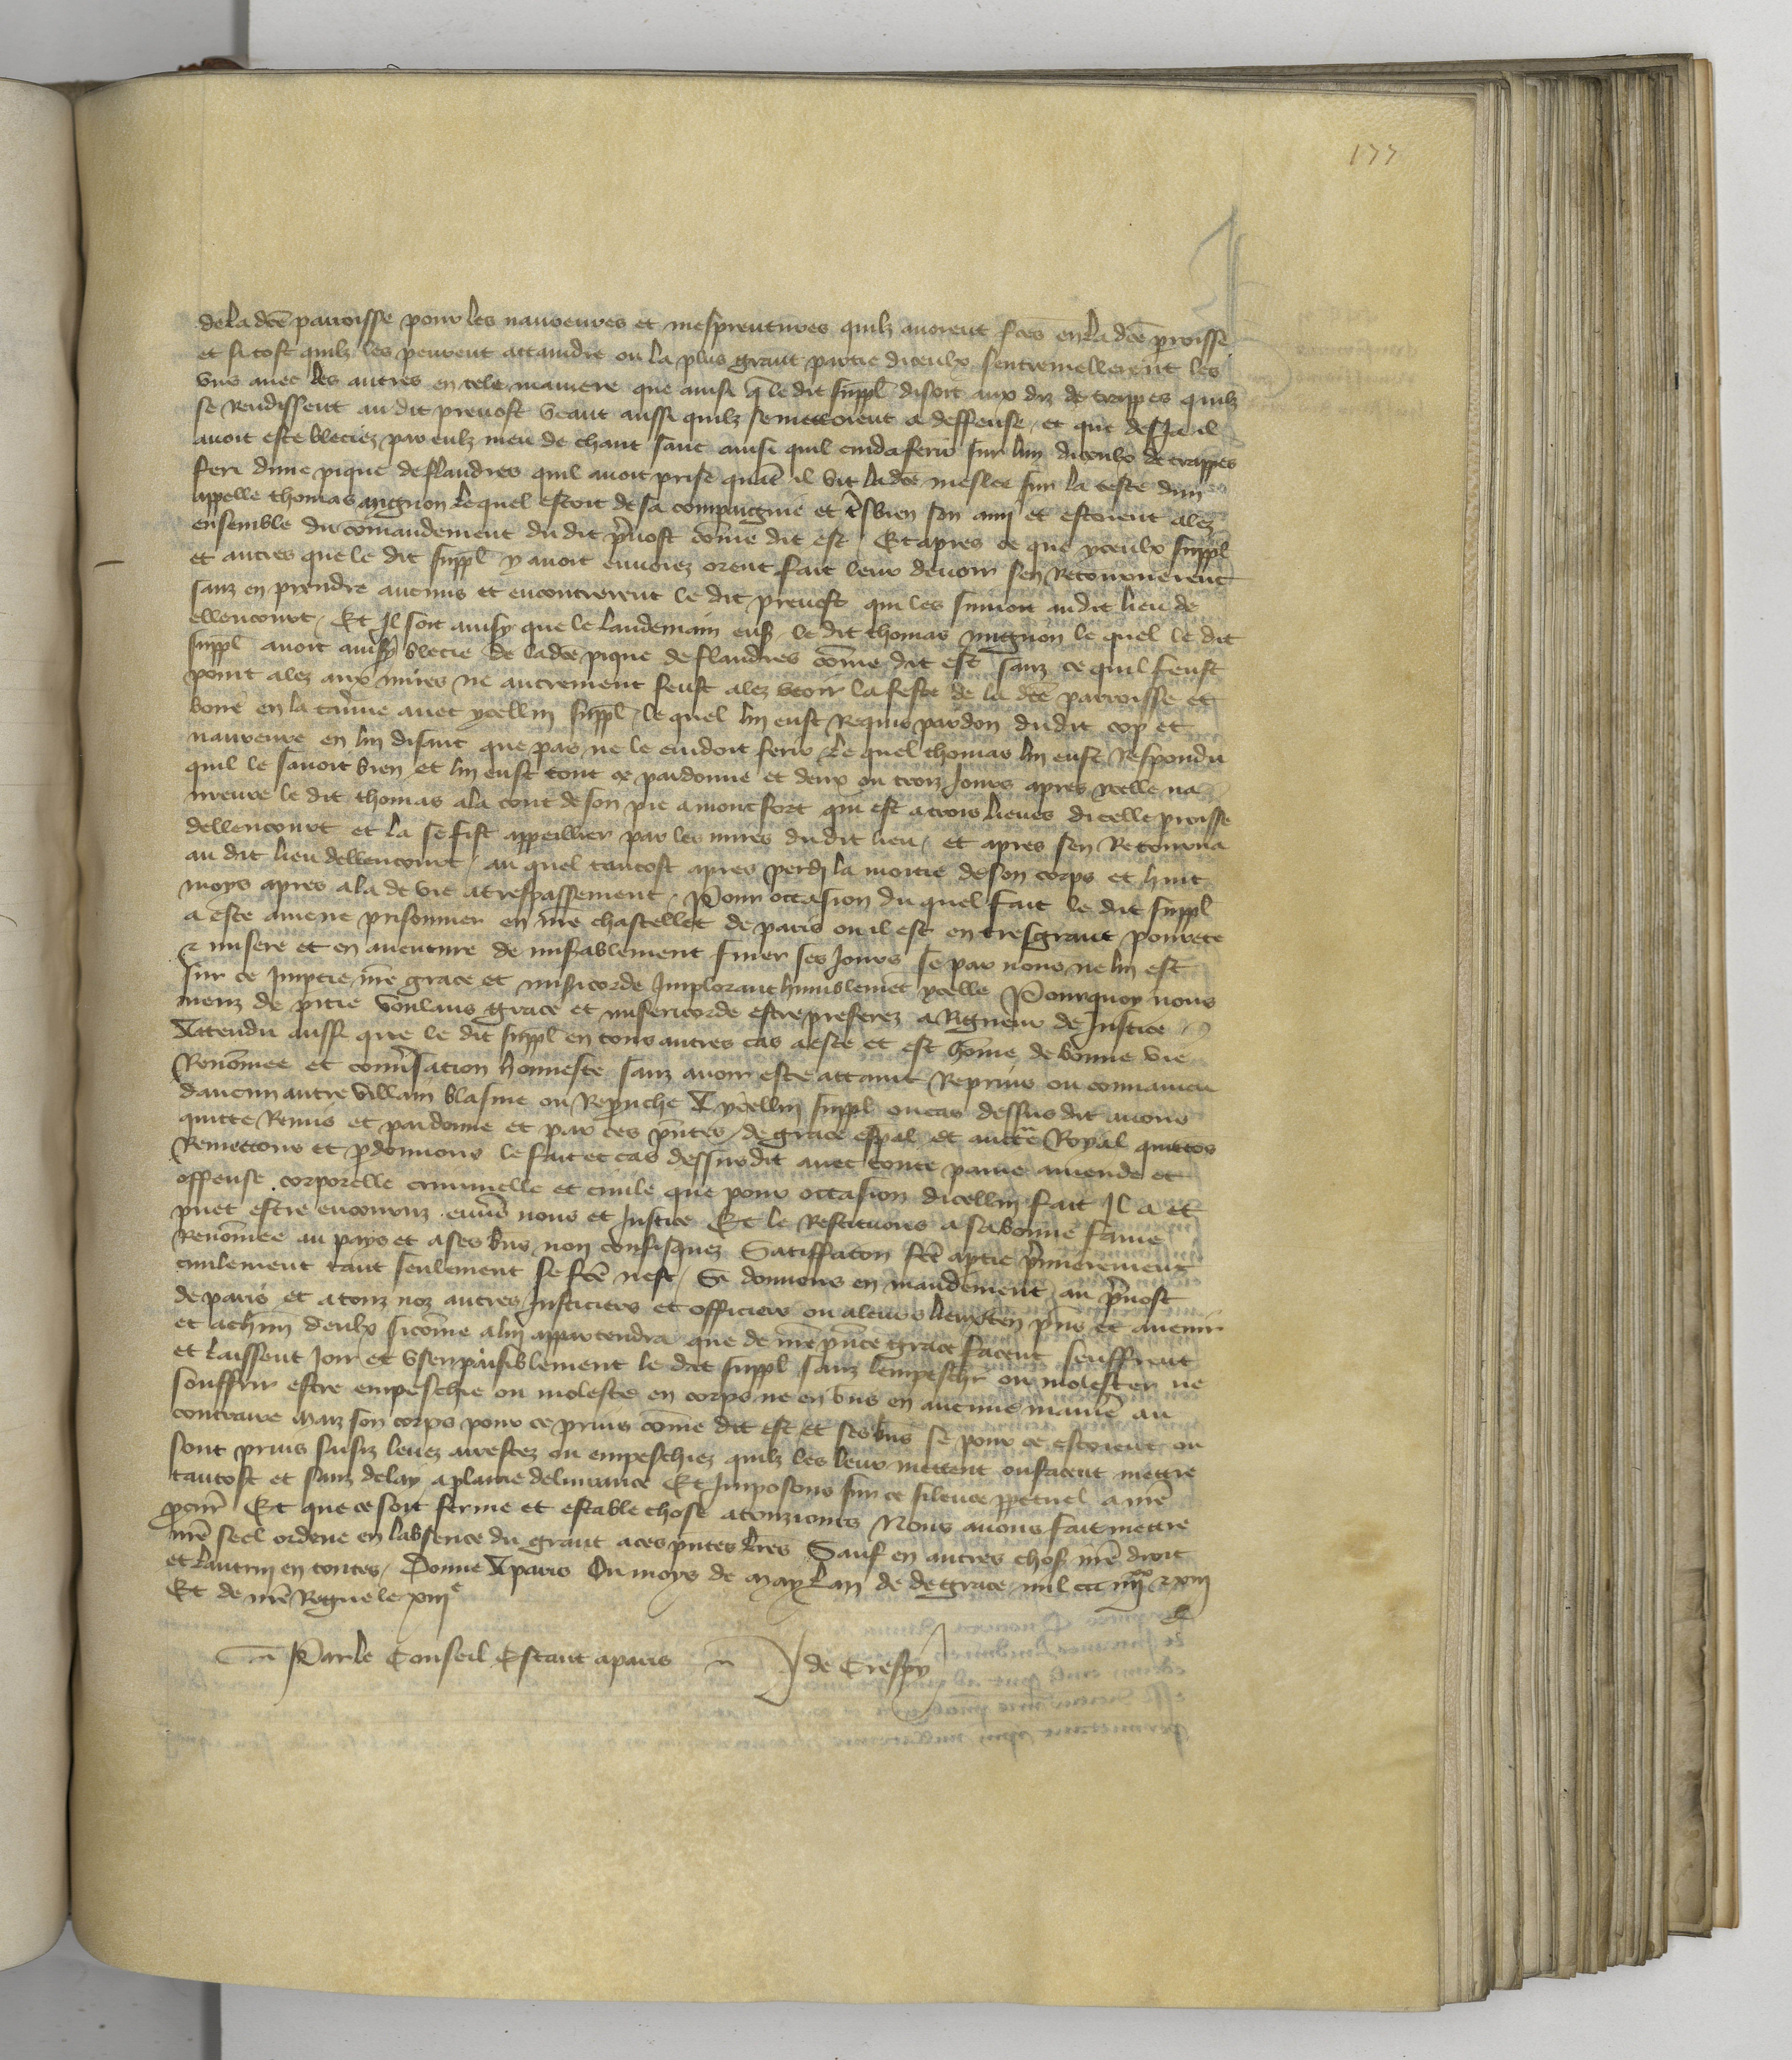 177
de la dcē parroisse pour les navreures et mesprentures quilz avoient fces en la dcē proisse
et si tost quilz les peurent attaindre ou la plus grant partie diceulx sentremellerent les
uns avec les autres en tele maniere que ainsi q̄ le dit suppl disoit aux diz de trappes quilz
se rendissent au dit prevost veant aussi quilz se mettoient a deffense et que desja il
avoit este bleciez par eulz meu de chaut sanc ainsi quil cuida ferir sur lun diceulx de trappes
feri dune pique de flandres quil avoit prise quāt il vit la dcē meslee sur la teste dun
appelle thomas mignon lequel estoit de sa compaignie et t̄sbien son amy et estoient alez
ensemble du comandement du dit p̄vost cōme dit est Et apres ce que yceulx suppl
et autres que le dit suppl y avoit envoiez orent fait leur devoir sen retournerent
sanz en prendre aucuns et encontrerent le dit prevost qui les suivoit au dit lieu de
ellencourt / Et Il soit ainsy que le landemain eust le dit thomas mignon le quel le dit
suppl avoit ainsy blecie de ladcē pique de flandres cōme dit est sanz ce quil feust
point alez aux mires ne autrement feust alez veoir la feste de la dcē parroisse et
boire en la tav̄ne avec ycellui suppl / le quel lui eust requis pardon du dit cop et
navreure en lui disant que pas ne le cuidoit ferir / le quel thomas lui eust respondu
quil le savoit bien et lui eust tout ce pardonne et deux ou trois Jours apres ycelle na
vreure le dit thomas ala tout de son pie a montfort qui est a trois lieues dicelle proisse
dellencourt et la se fist appeillier par les mires du dit lieu / et apres sen retourna
au dit lieu dellencourt / au quel tantost apres perdi la moitie de son corps et huit
moys apres ala de vie a trespassement / Pour occasion du quel fait le dit suppl
a este amene prisonnier en nr̄e chastellet de paris ou il est en tresgrant povrete
et misere et en aventure de mis̄ablement finer ses Jours se par nous ne lui est
sur ce Imptie nr̄e grace et mis̄icorde Implorant humblemēt ycelle Pourquoy nous
meuz de pitie voulans grace et misericorde estre preferez a Rigueur de Justice
Attendu aussi que le dit suppl en tous autres cas a este et est hōme de bonne vie
Renōmee et conv̄sation honneste sanz avoir este attaint Reprins ou convaincu
daucun autre villain blasme ou Reprouche A ycellui suppl ou cas dessus dit avons
quitte Remis et pardonne et par ces pn̄tes de grace esp̄al et auct̄te Royal quittons
Remettons et pdonnons le fait et cas dessus dit avec toute paine amende et
offense corporelle criminelle et civile que pour occasion dicellui fait Il a et
puet estre encouruz env̄s nous et Justice Et le Restituons a sa bonne fame
Renōmee au pays et a ses bn̄s non confisquez Satiffacōn fcē a ptie p̄mierement
civilement tant seulement se fcē nest / Si donnons en mandement au p̄vost
de paris et a touz noz autres Justiciers et officiers ou a leurs lieuxten pn̄s et avenir
et a chūn deulx sicōme a lui appartendra que de nr̄e pn̄te grace facent seuffrent
et laissent Joir et user paisiblement le dit suppl sanz lempeschr̄ ou molester ne
souffrir estre empeschie ou moleste en corps ne en bn̄s en aucune manie au
contraire Maiz son corps pour ce prins cōme dit est et ses bn̄s se pour ce estoient ou
sont prins saisiz levez arrestez ou empeschiez quilz les leur mettent ou facent mettre
tantost et sanz delay a plaine delivrance Et Imposons sur ce silence ppetuel a nr̄e
pcur̄ Et que ce soit ferme et estable chose a touzjours Nous avons fait mettre
nr̄e seel ordene en labsence du grant a ces pn̄tes lr̄es Sauf en autres chos̄ nr̄e droit
et lautrui en toutes / Donne A paris Ou moys de may Lan de de grace mil ccc iiiixx et xiii
Et de nr̄e Regne le xiiie
Par le Conseil Estant a paris J de Crespy